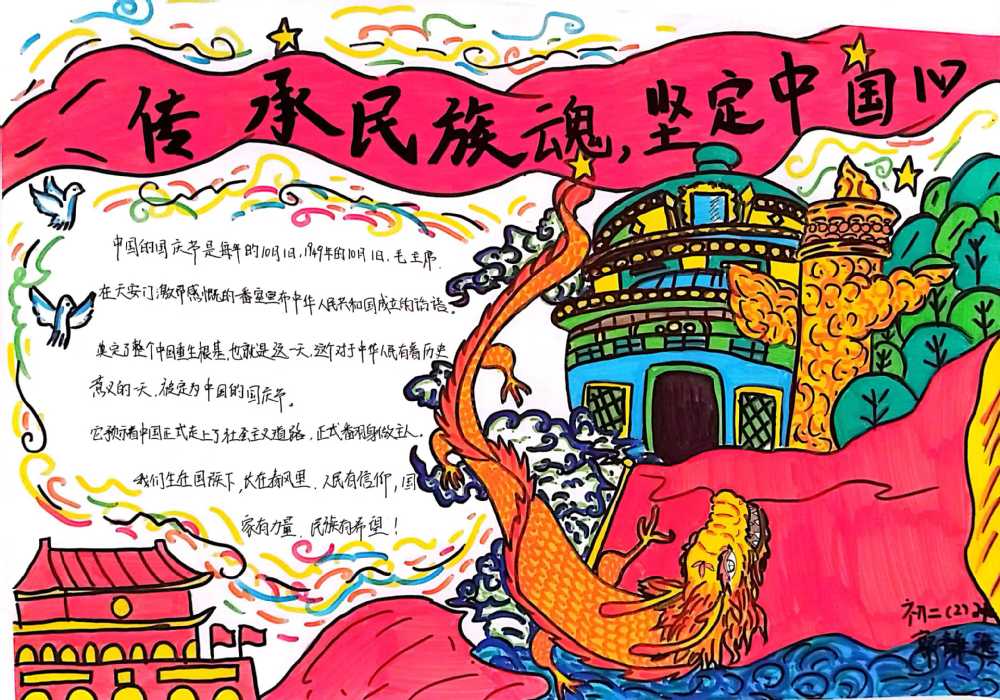 传承民族魂,坚定中国心
中国的国庆节是每年的10月1日,1949年的10月1日,毛主席.
在天安门激昂感慨的一番宣布中华人民共和国成立的
奠定了整个中国重生根基,也就是这一天,这个对于中华人民有着历史
意义的一天,被定为中国的国庆节。
它预示着中国正式走上了社会主义道路,正式翻身做主人.
我们生在国旗下,长在春风里.人民有信仰,国
家有力量.民族有希望!
初二(2)